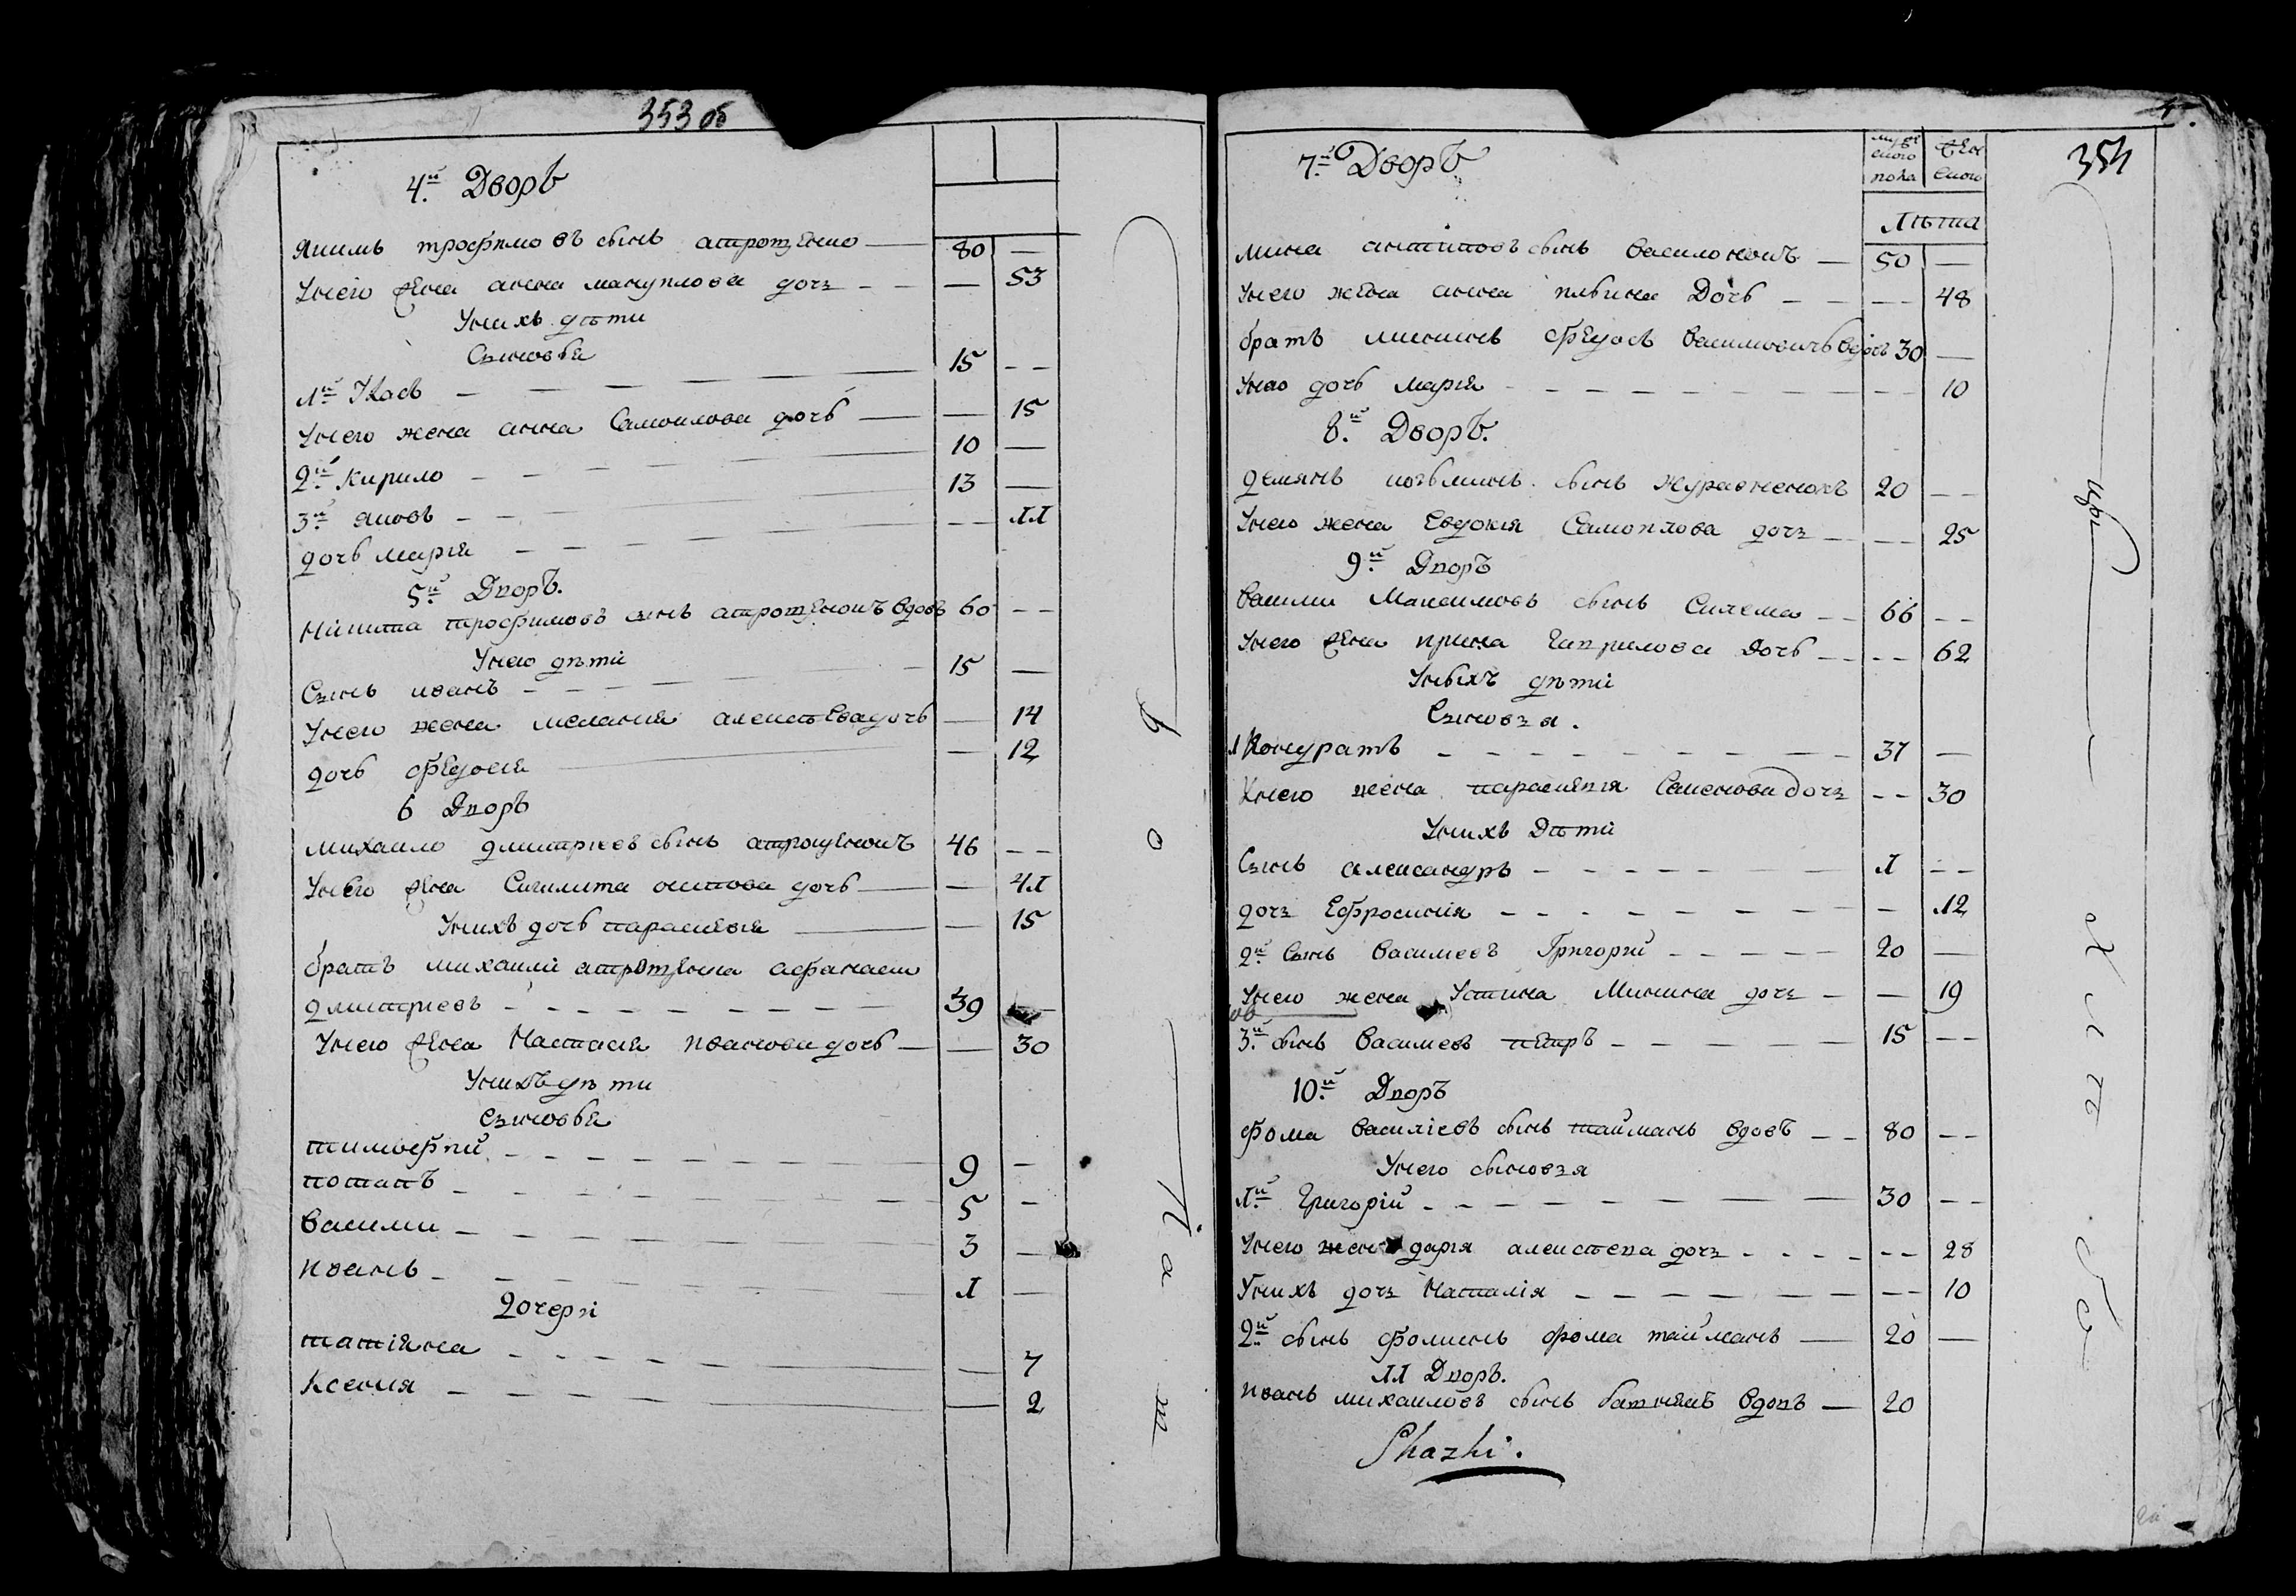 353 об
4й. Дворъ
Якимъ трофимовъ сынъ атрощенко — 80 —
Унего жена анна мануилова дочъ — — — 53
Унихъ дѣти
Сыновья
1й Власъ — — — — — 15 — —
Унего жена анна Самоилова дочь — — 15
2й. Кирило — — — — — 10 —
3й. яковъ — — — 13 —
дочь мария — — — — — — 11
5й. Дворъ.
Никита трофимовъ сынъ атрощенокъ вдовъ 60 — —
Унего дѣти
Сынъ иванъ — — — — 15 —
Унего жена мелания алексѣева дочь — 14
дочь федосия — — 12
6 Дворъ
михаило дмитриевъ сынъ атрощенокъ 46 — —
Унего жена Сигклита осипова дочь — — 41
Унихъ дочь параскевия — — 15
братъ михаили атрощенка афанаси
дмитриевъ — — — — — — — 39 —
Унего жена Настасия иванова дочь — — 30
Унихъ дѣти
сыновья
тимофѣй — — — — — — — 9 —
потапъ — — — — — — — 5 —
Васили — — — — — — 3 —
иванъ — — — — — 1 —
Дочери
татияна — — — — — — — 7
Ксения — — — — — — 2
354
7й Дворъ
мужеского пола
женского
Лѣта
мина антиповъ сынъ василонокъ — 50 —
Унего жена анна илъина Дочь — — — — 48
братъ мининъ федосъ василионокъ вдовъ 30 —
Унего дочь мария — — — — — — — — — 10
8й. Дворъ.
демянъ козьминъ сынъ журавненокъ 20 — —
Унего жена Евдокия Самоилова дочъ — — — 25
9й. Дворъ
василии Максимовъ сынъ Сикема — — 66 — —
Унего жена ирина гаврилова Дочь — — — — 62
Уныхъ дѣти
Сыновъя.
1 Кондратъ — — — — — — — — 37 —
Унего жена параскевия Семенова дочъ — — 30
Унихъ Дѣти
Сынъ александръ — — — — — — 1 — —
дочъ Ефросиния — — — — — — — — 12
2й. Сынъ Василиевъ Григорий — — — — — 20 —
Унего жена Устина Минина дочъ — — 19
3й. сынъ Василиевъ петръ — — — — — 15 — —
10й. Дворъ
фома Василиевъ сынъ тайманъ вдовъ — — 80 — —
Унего сыновъя
1й. Григорій — — — — — — — 30 — —
Унего жена даря алексѣева дочъ — — — — — — 28
Унихъ дочъ Наталія — — — — — — — — 10
2й. сынъ фоминъ фома тайманъ — 20 —
11 Дворъ.
иванъ михаиловъ сынъ батнякъ вдовъ — 20